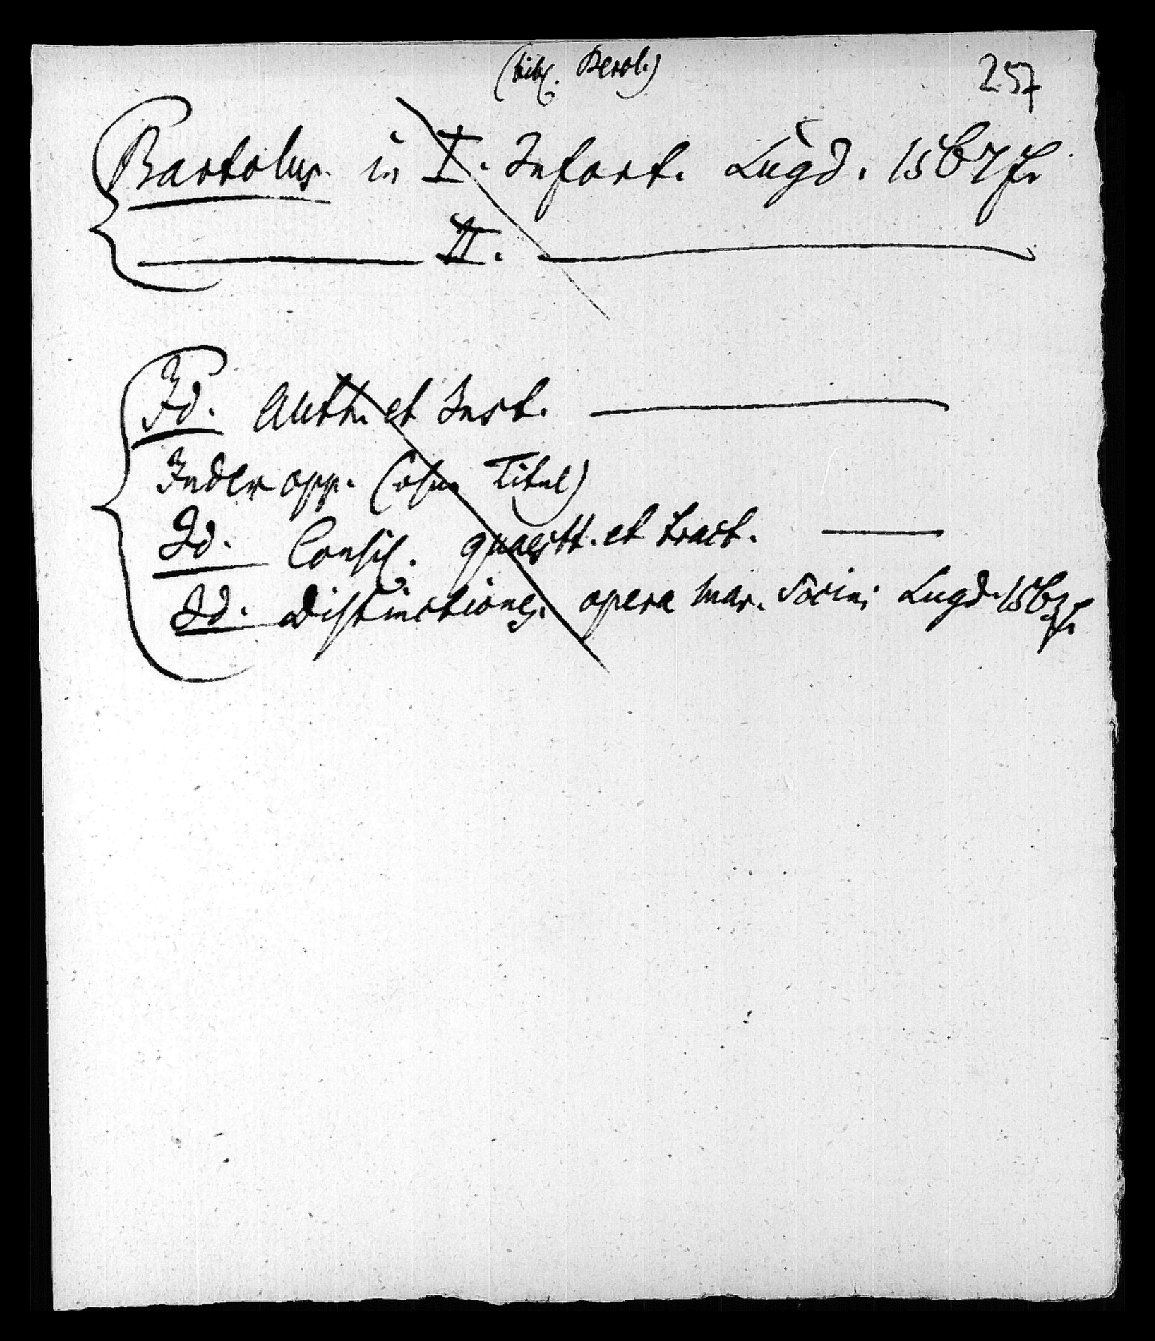 (bibl. Berol.)
257
Bartolus in I. Infort. Lugd. 1567 f.
II.
Id. Auth. et Inst.
Index opp. (ohne Titel)
Id. Consil. quaestt. et tract.
Id. Distinctiones. opera Mar. Socini Lugd. 1567 f.